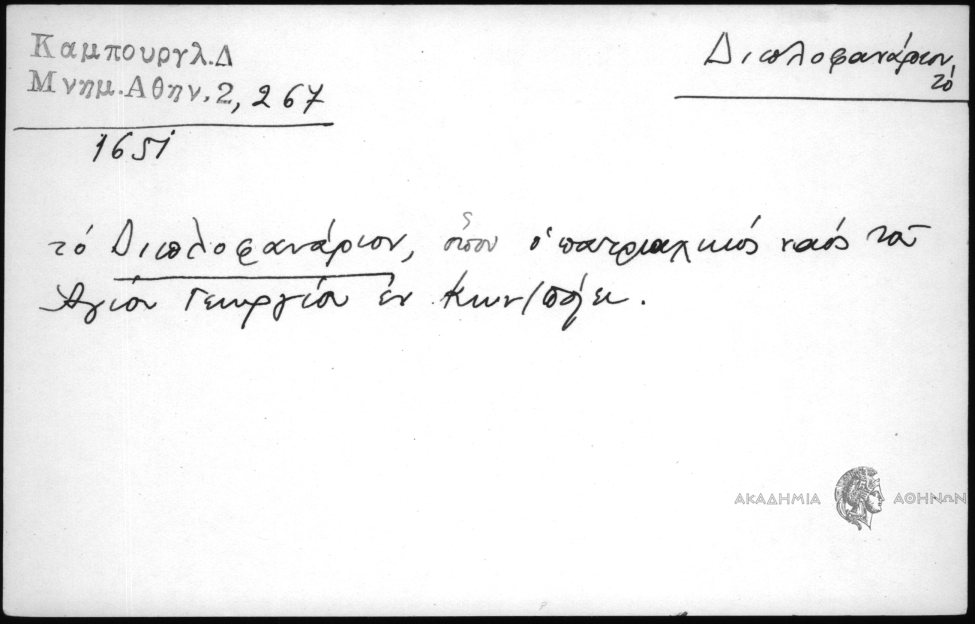 Καμπουργλ.Δ
Μνημ.Αθην.2, 267
1651
Διπλοφανάριον,
τό
τό Διπλοφανάριον, ὅπου ὁ πατριαρχικός ναός τοῦ
Ἁγίου Γεωργίου ἐν Κων/πόλει.
ΑΚΑΔΗΜΙΑ ΑΘΗΝΩΝ